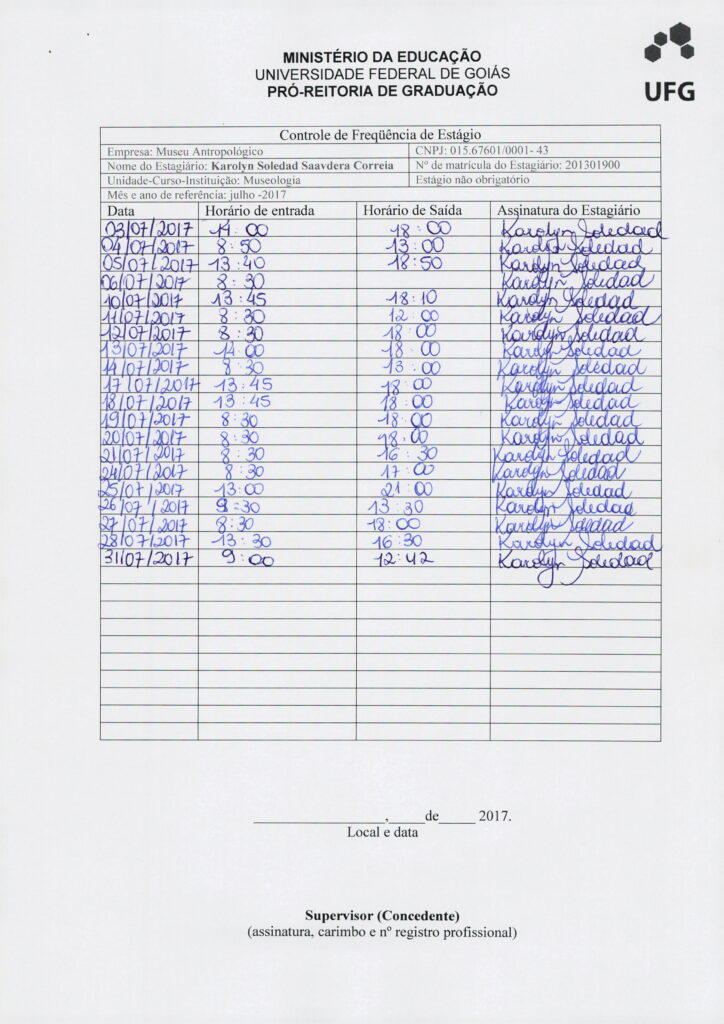 MINISTÉRIO DA EDUCAÇÃO
UNIVERSIDADE FEDERAL DE GOIÁS
PRÓ-REITORIA DE GRADUAÇÃO
UFG
Controle de Freqüência de Estágio
Empresa: Museu Antropológico CNPJ: 015.67601/0001- 43
Nome do Estagiário: Karolyn Soledad Saavdera Correia Nº de matrícula do Estagiário: 201301900
Unidade-Curso-Instituição: Museologia Estágio não obrigatório
Mês e ano de referência: julho -2017
Data Horário de entrada Horário de Saída Assinatura do Estagiário
03/07/2017 14:00 18:00 Karolyn Soledad
04/07/2017 8:50 13:00 Karolyn Soledad
05/07/2017 13:40 18:50 Karolyn Soledad
06/07/2017 8:30 Karolyn Soledad
10/07/2017 13:45 18:10 Karolyn Soledad
11/07/2017 8:30 12:00 Karolyn Soledad
12/07/2017 8:30 18:00 Karolyn Soledad
13/07/2017 14:00 18:00 Karolyn Soledad
14/07/2017 8:30 13:00 Karolyn Soledad
17/07/2017 13:45 18:00 Karolyn Soledad
18/07/2017 13:45 18:00 Karolyn Soledad
19/07/2017 8:30 18:00 Karolyn Soledad
20/07/2017 8:30 18:00 Karolyn Soledad
21/07/2017 8:30 16:30 Karolyn Soledad
24/07/2017 8:30 17:00 Karolyn Soledad
25/07/2017 13:00 21:00 Karolyn Soledad
26/07/2017 9:30 13:30 Karolyn Soledad
27/07/2017 8:30 18:00 Karolyn Soledad
28/07/2017 13:30 16:30 Karolyn Soledad
31/07/2017 9:00 12:42 Karolyn Soledad
__________________,_____de_____ 2017.
Local e data
Supervisor (Concedente)
(assinatura, carimbo e nº registro profissional)